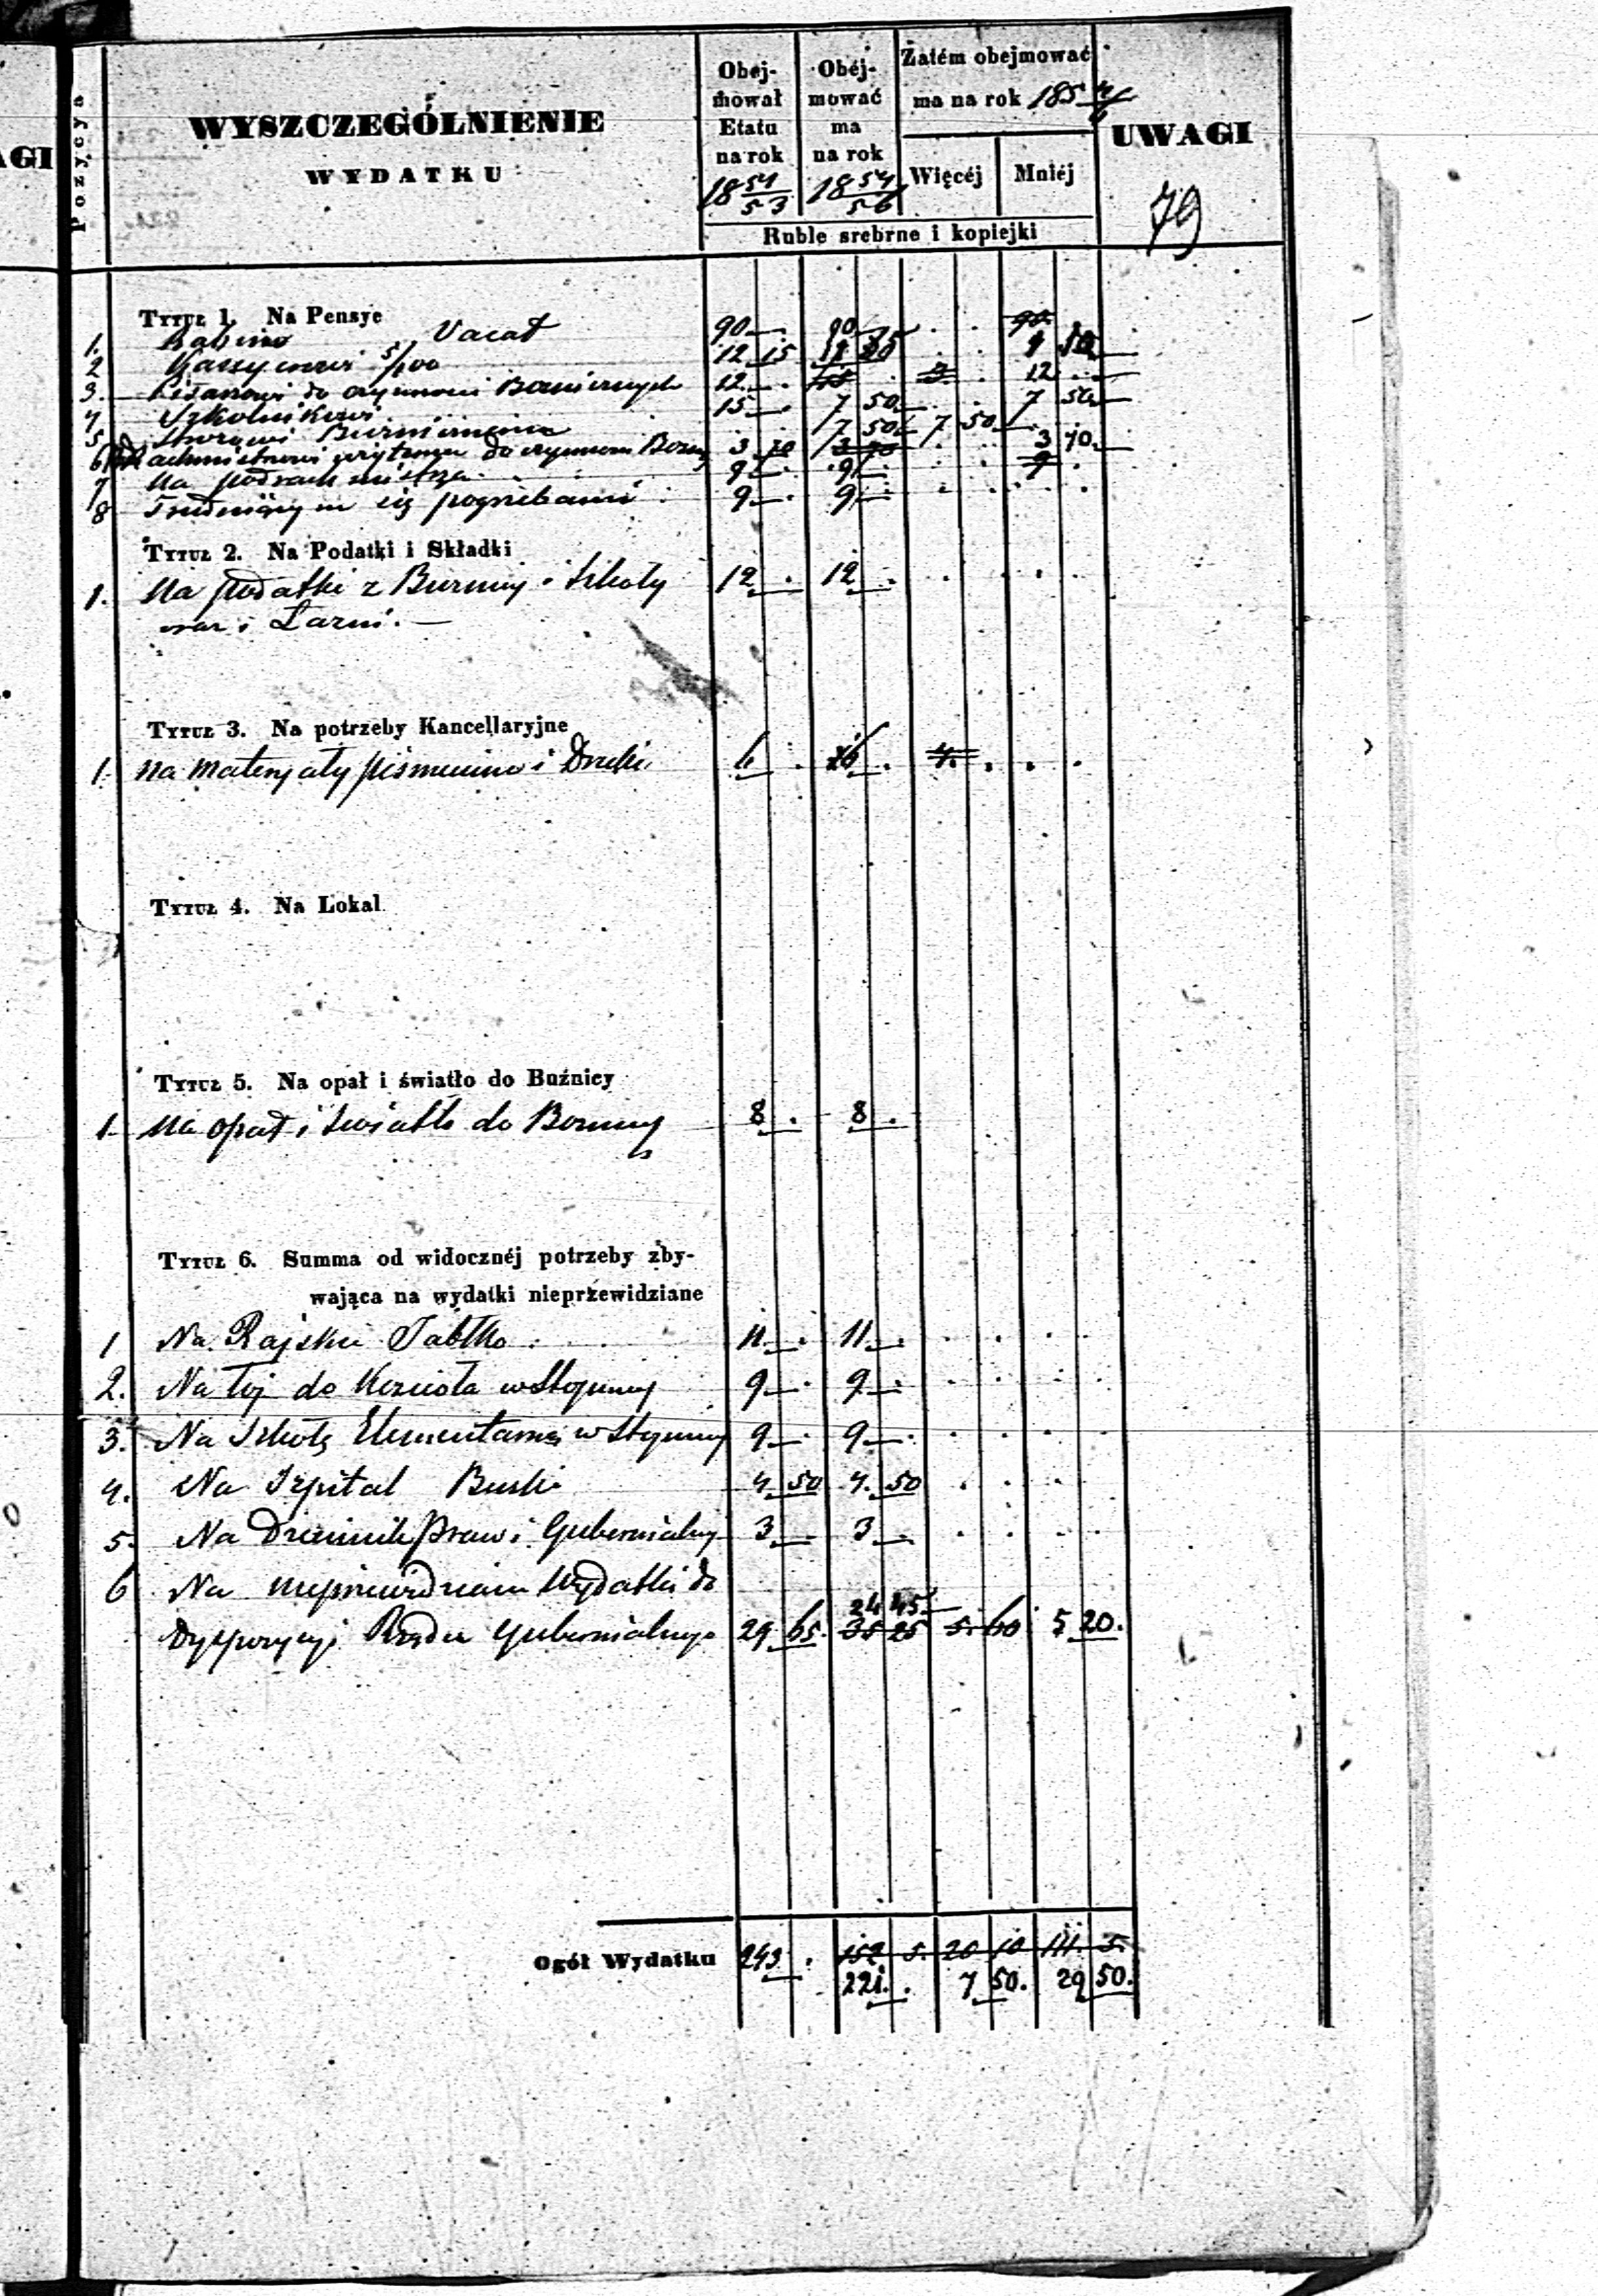 AGI
Pozycye
WYSZCZEGÓLNIENIE
WYDATKU
Obejmował Etatu na rok 18 51/53
Obejmować ma na rok 18 54/56
Zatém obejmować ma na rok 185 4/6
Więcéj Mniéj
UWAGI
79
Ruble srebrne i kopiejki
Tytuł 1. Na Pensye
1. Rabino Vacat 90 — . 90 — . . 90
2 Kassyerowi 5/100 12 15 . . 1
3. Pisarowi do czynności Bożniczych 12 — . . 3 . 12 . .
4 Szkolnikowi 15 — . 7 50 . . 7 50
5 Stróżowi 7 50 7 50
6 do Bożn 3 70 3 70 . . 3 70
7 Na podrachmistrza 9 — . 9 — . . 9 .
8 Trudniącym się pogrzebami 9 — . 9 — . . . . .
Tytuł 2. Na Podatki i Składki
1. Na podatki z Bużnicy i Szkoły 12 . 12 . . . . .
oraz i Łazni. —
Tytuł 3. Na potrzeby Kancellaryjne
1. na materyały piśmienne i Druki 6 . 6 . 4 . . .
Tytuł 4. Na Lokal
Tytuł 5. Na opał i światło do Buźnicy
1. na opał i światło do Boznicy 8 . 8 .
Tytuł 6. Summa od widocznéj potrzeby zby-
wająca na wydatki nieprzewidziane
1 Na Rajskie Jabłko . 11 . 11 . . . . .
2. Na Łój do Kościoła w Stopnicy 9 — . 9 — . . . . .
3. Na Szkołę Elementarną w Stopnicy 9 — . 9 — . . . . .
4. Na Szpital Buski 4 50 4. 50 . . . .
5. Na Dziennik Praw i Gubernialny 3 . 3 . . . . .
6 Na nieprzewidziane Wydatki do
24 45.
Dyspozycyi Rządu Gubernialnego 29 65. 35 25 5. 60 5 20.
Ogół Wydatku 243 . 152 5. 20 10 111. 5.
221. . 7 50. 29 50.